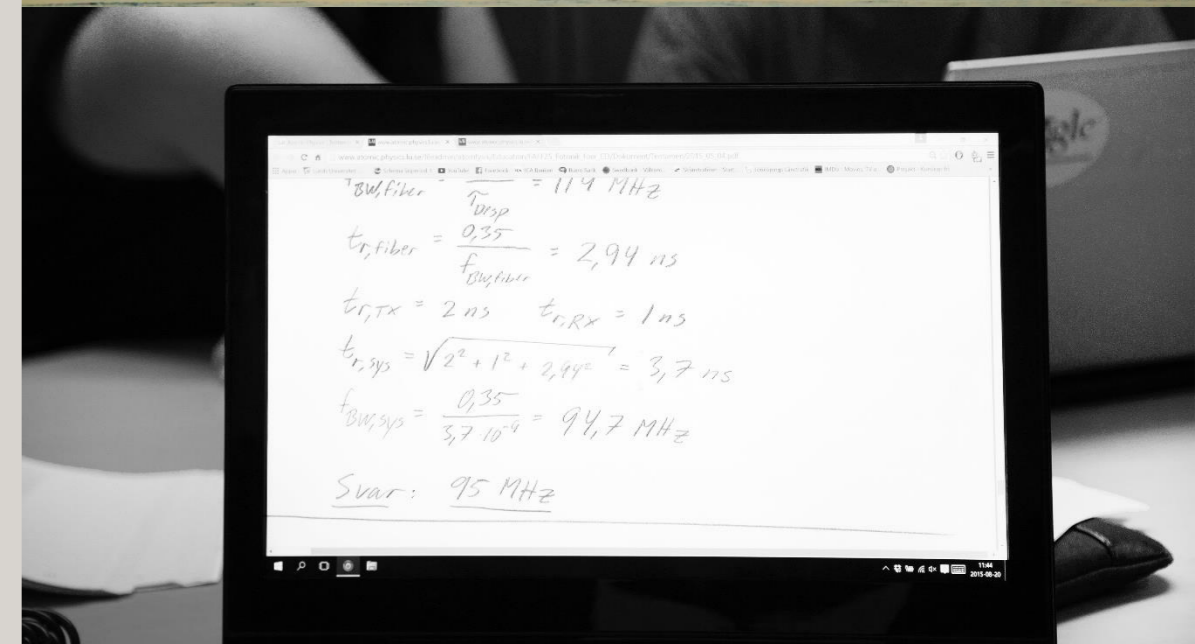 YouTube Facebook
BW,fiber = = 119 MHz
τDisp
tr,fiber = 0,35 / fBW,fiber = 2,94 ns
tr,TX = 2 ns tr,RX = 1 ns
tr,sys = √2² + 1² + 2,94² = 3,7 ns
fBW,sys = 0,35 / 3,7 10⁻⁹ = 94,7 MHz
Svar: 95 MHz
11:44
2015-08-20
gle